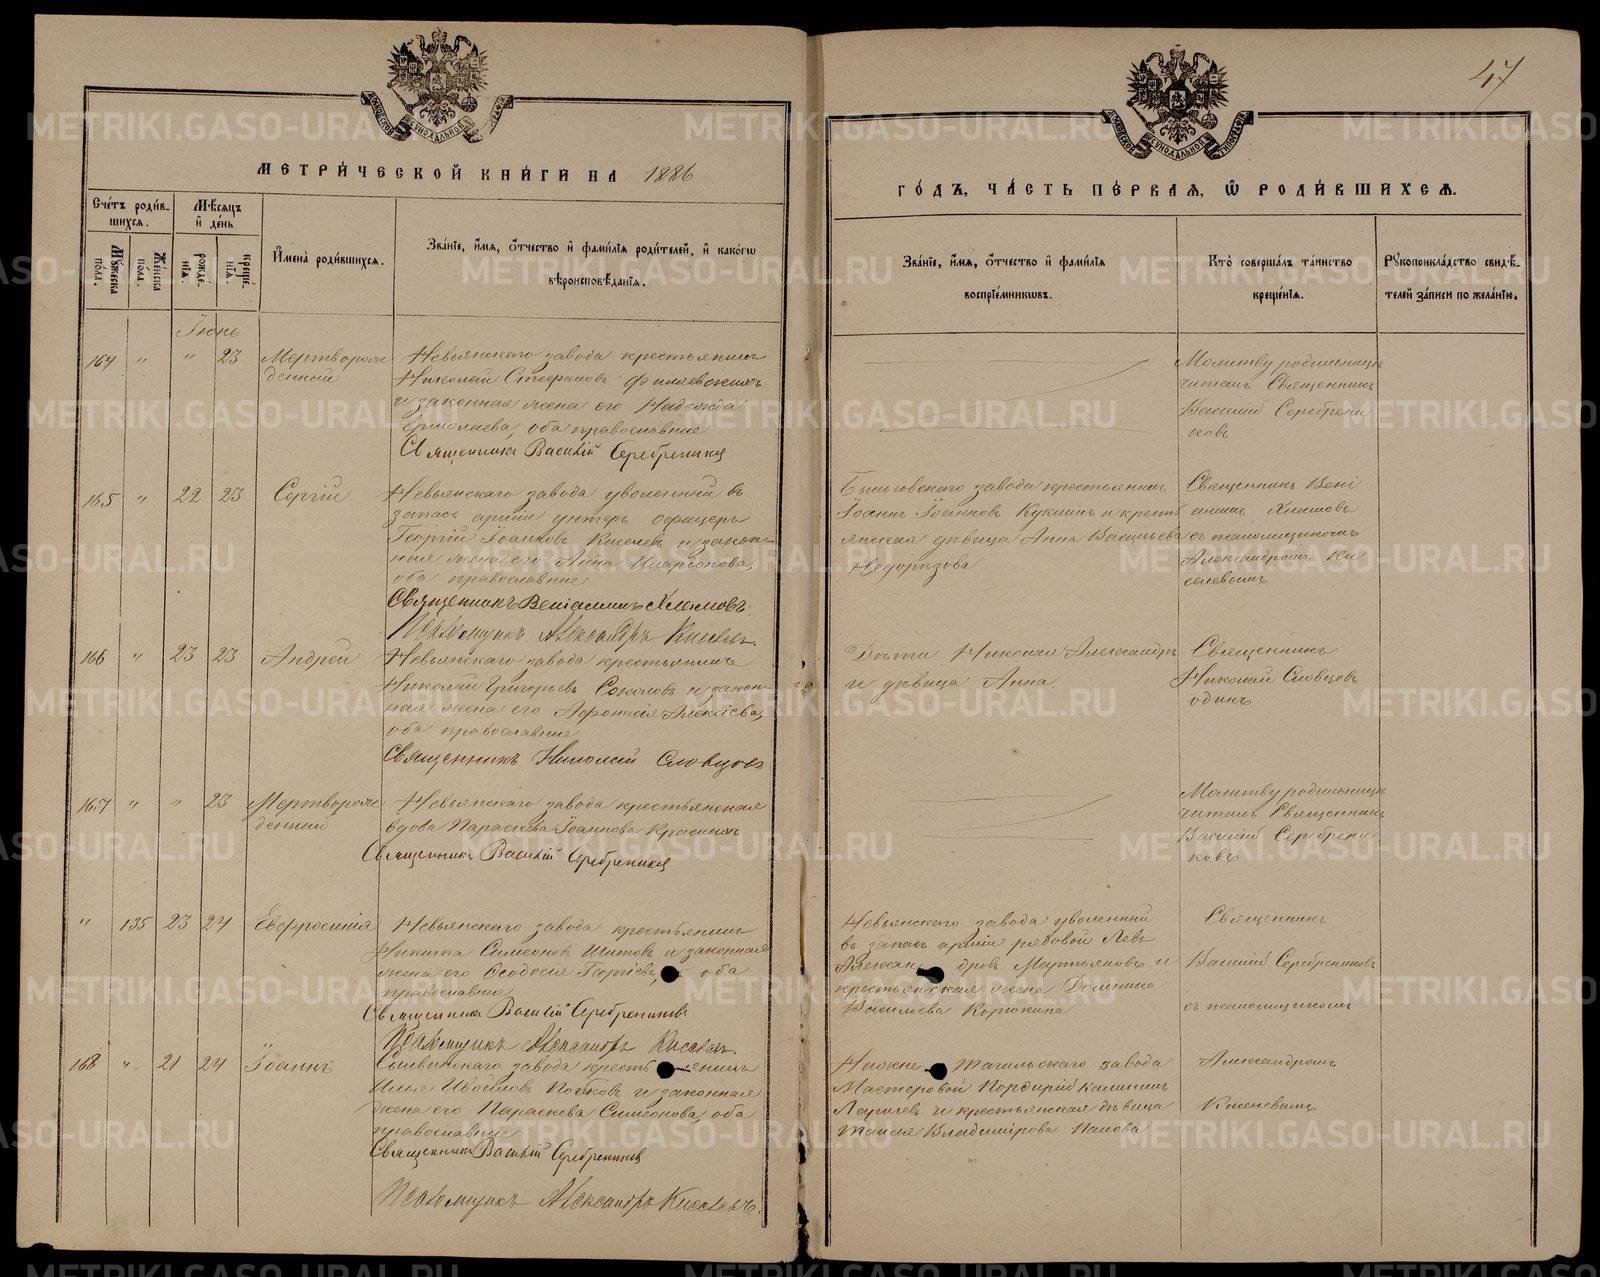 47
МОСКОВСКОЙ СѴНОДАЛЬНОЙ ТИПОГРАФІИ
МОСКОВСКОЙ СѴНОДАЛЬНОЙ ТИПОГРАФІИ
МЕТРИ́ЧЕСКОЙ КНИ́ГИ НА 1886
ГО́ДЪ, ЧА́СТЬ ПЕ́РВАЯ, Ѡ҆ РОДИ́ВШИХСѦ.
Сче́тъ роди́в-
шихся.
Мꙋ́жеска по́ла.
Же́нска по́ла.
Мѣ́сяцъ
и҆ де́нь
рожде́-
нїѧ.
креще́-
нїѧ.
И҆мена̀ роди́вшихся.
Зва́нїе, и҆́мя, ѻ҆́тчество и҆ фами́лїя роди́телей, и҆ како́гѡ
вѣроисповѣ́данїя.
Зва́нїе, и҆́мя, ѻ҆́тчество и҆ фами́лїя
воспрїе́мниковъ.
Кто̀ соверша́лъ та́инство
креще́нїя.
Рꙋкоприкла́дство свидѣ́-
телей за́писи по жела́нїю.
Іюнь
164 " " 23 Мертворож
денный
Невьянскаго завода крестьянинъ
Николай Стефановъ
и законная жена его Надежда
Ермолаева, оба православные
Священникъ Василій Серебрениковъ
Молитву родильницѣ
читалъ Священникъ
Василій Серебрени
ковъ
165 " 22 23 Сергій
Невьянскаго завода уволенный въ
запасъ арміи унтеръ офицеръ
Георгій Іоанновъ Киселевъ и закон-
ная жена его Анна Иларіонова,
оба православные
Священникъ Веніаминъ Хлыновъ
Псаломщикъ Александръ Киселевъ.
завода крестьянинъ
Іоаннъ Іоанновъ Кукшинъ и крест
янская дѣвица Анна Васильева
Недорѣзова
Священникъ Вені
аминъ Хлыновъ
съ псаломщикомъ
Александромъ Ки
селевымъ
166 " 23 23 Андрей
Невьянскаго завода крестьянинъ
Николай Григорьевъ Соколовъ и закон-
ная жена его Афонасія Алексіева,
оба православные
Священникъ Николай Словцовъ
Дѣти Николая Александръ
и дѣвица Анна.
Священникъ
Николай Словцовъ
одинъ
167 " " 23 Мертворож
денный
Невьянскаго завода крестьянская
вдова Параскева Іоаннова
Священникъ Василій Серебрениковъ
Молитву родильницѣ
читалъ Священникъ
Василій Серебрени
ковъ
" 135 23 24 Евфросинія
Невьянскаго завода крестьянинъ
Никита Симеоновъ Шитовъ и законная
жена его Ѳеодосія Георгіева, оба
православные
Священникъ Василій Серебрениковъ
Псаломщикъ Александръ Киселевъ.
Невьянскаго завода уволенный
въ запасъ арміи рядовой Левъ
Александровъ Мартьяновъ и
крестьянская жена Домнина
Васильева Корюкина
Священникъ
Василій Серебрениковъ
съ псаломщикомъ
168 " 21 24 Іоаннъ
завода крестьянинъ
Илья и законная
жена его Параскева Симеонова, оба
православные
Священникъ Василій Серебрениковъ
Псаломщикъ Александръ Киселевъ.
Нижне Тагильскаго завода
Мастеровой Порфирій
Ларичевъ и крестьянская дѣвица
Таисія Владимірова Попова
Александромъ
Киселевымъ
METRIKI.GASO-URAL.RU